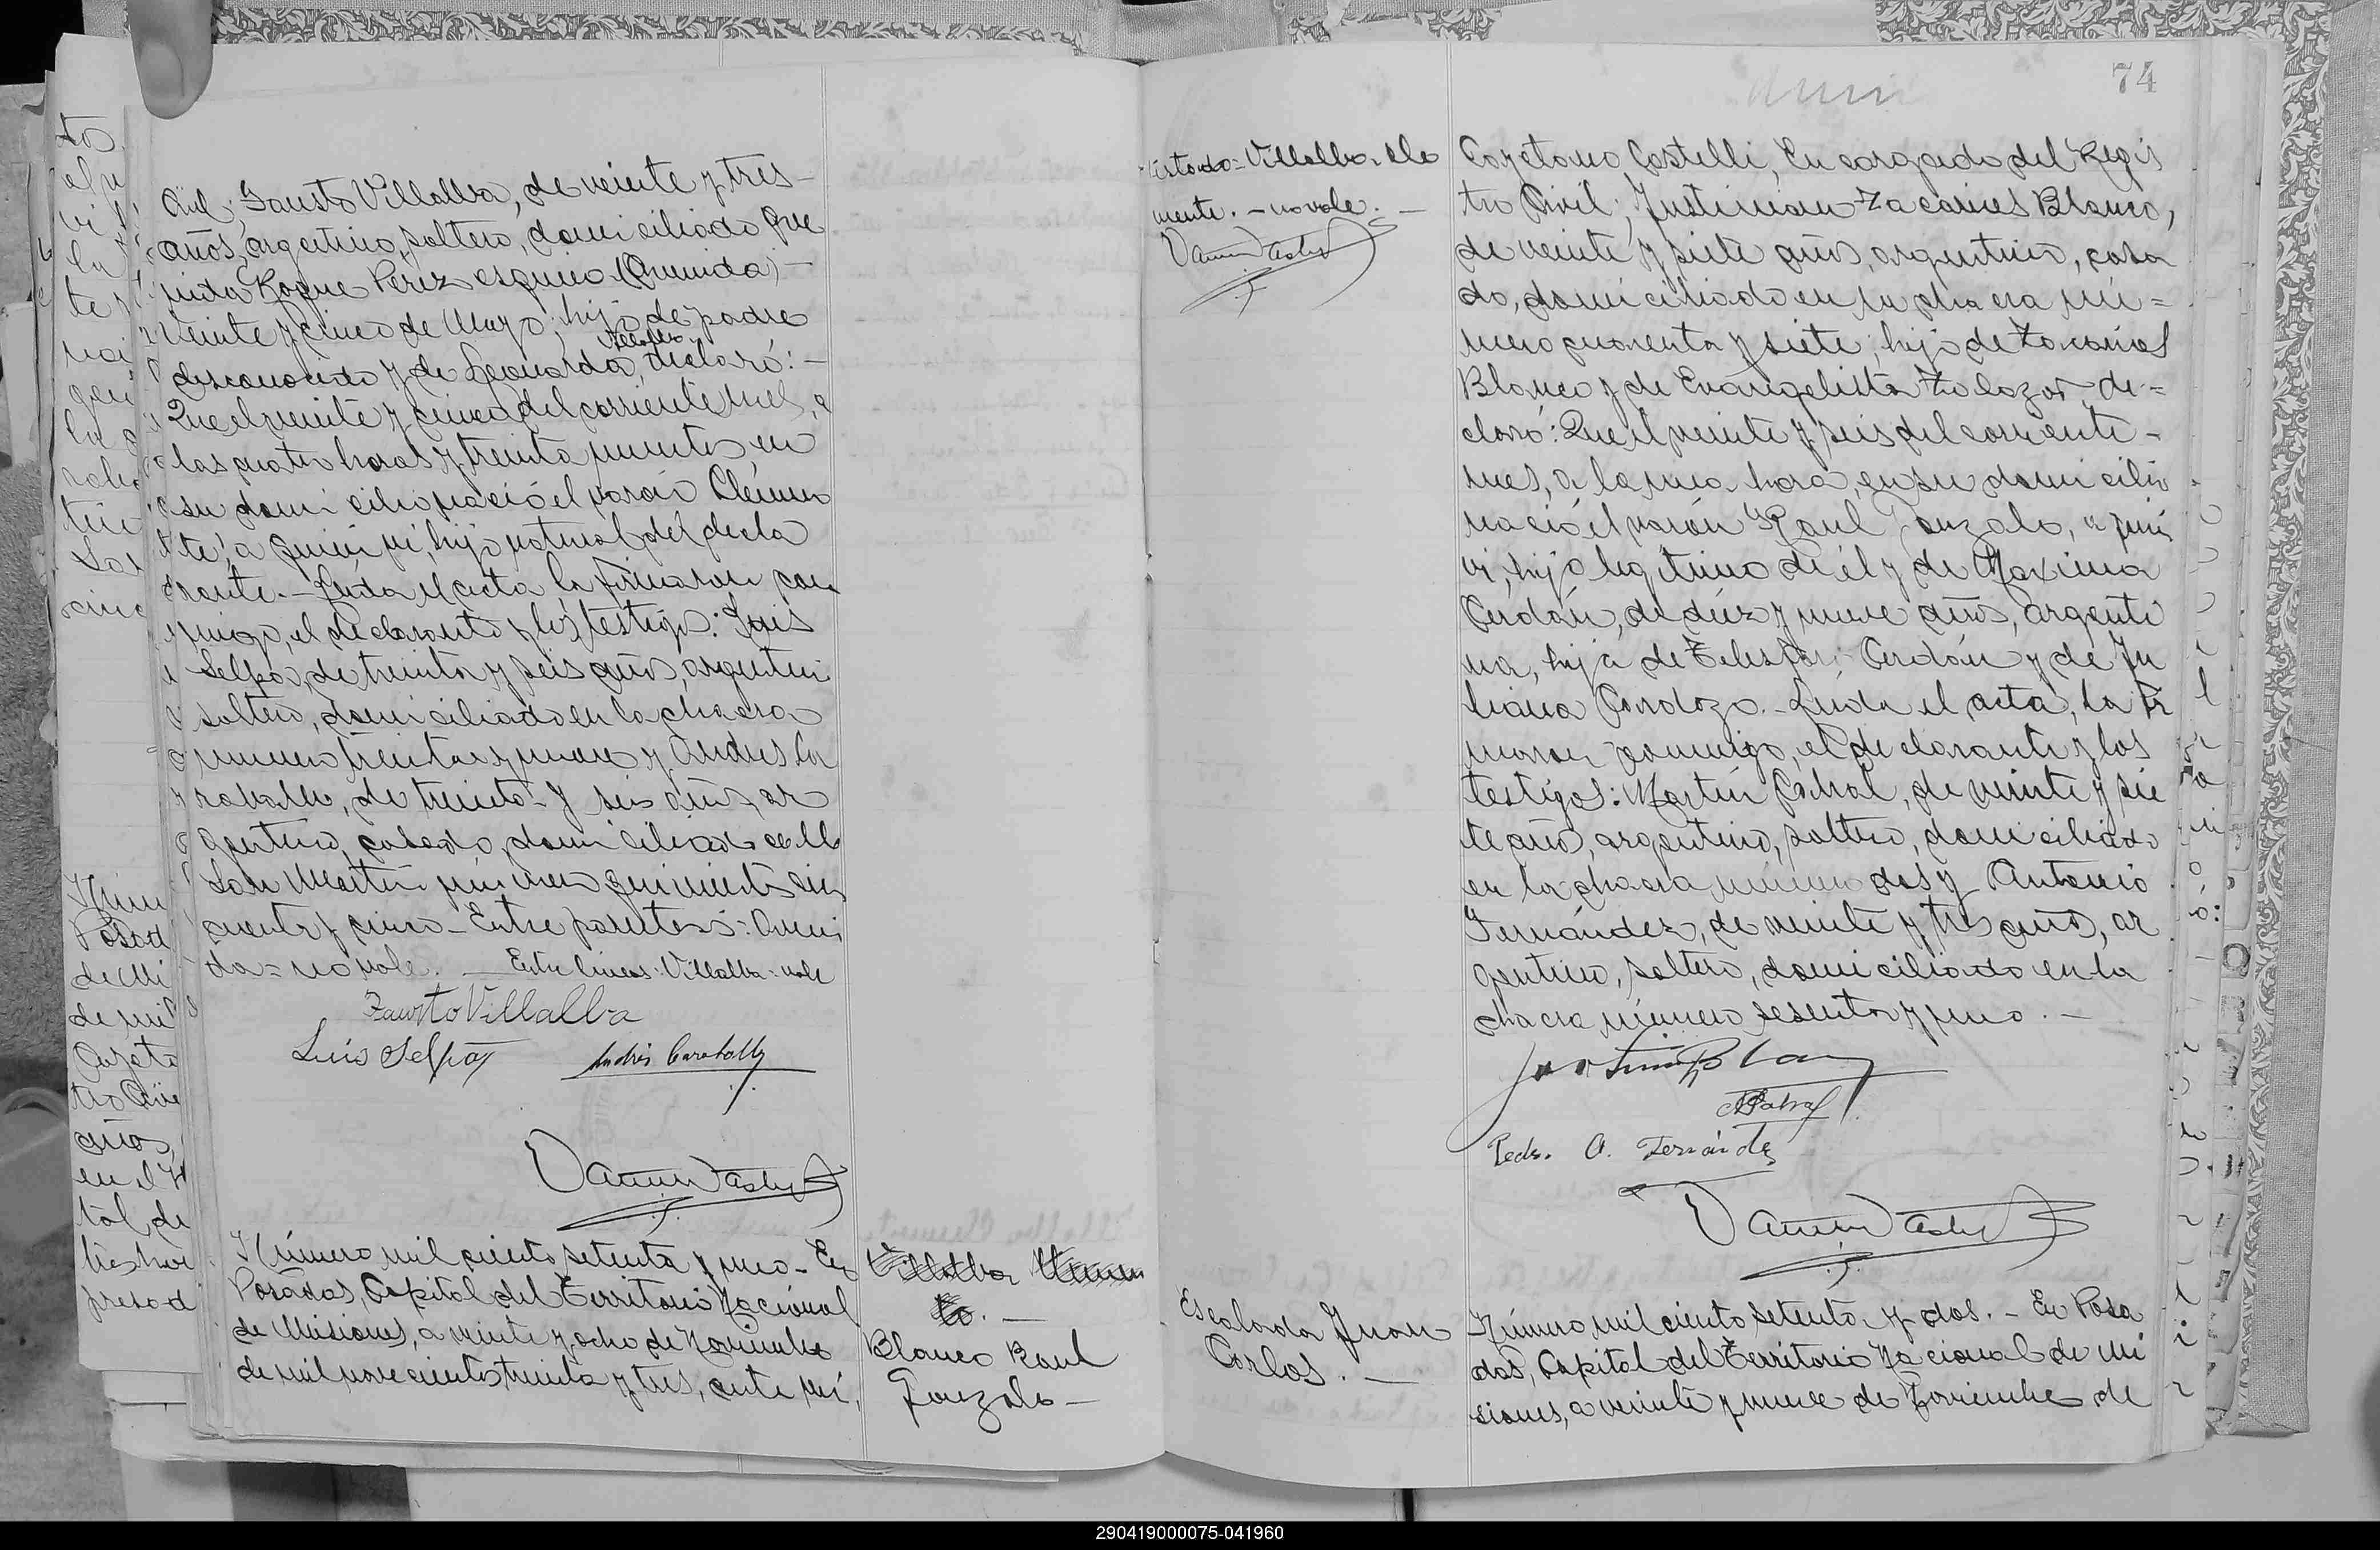 vil; Fausto Villalba, de veinte y tres
años, argentino, soltero, domiciliado Ave
nida Roque Perez esquina (Avenida)
veinte y cinco de Mayo; hijo de padre
desconocido y de Leonarda Villalba, declaró:
Que el veinte y cinco del corriente mes, a
las cuatro horas y treinta minutos en
su domicilio nació el varón Clemen
te, a quien vi, hijo natural del decla
rante.- Leida el acta la firmaron con
migo, el declarante y los testigos: Luis
Selpa, de treinta y seis años, argentino
soltero, domiciliado en la chacra
numero treinta y nueve y Andres Ca
raballo, de treinta y seis años, ar
gentino, casado, domiciliado calle
San Martin número quinientos cin
cuenta y cinco - Entre parentesis: Aveni
da = no vale. - Entre lineas: Villalba: vale
Fausto Villalba
Luis Selpa Andrés Caraballo
Número mil ciento setenta y uno - En
Posadas, Capital del Territorio Nacional
de Misiones, a veinte y ocho de Noviembre
de mil novecientos treinta y tres, ante mí,
Villalba Clemen
te.-
Blanco Raul
Gonzalo -
74
Testado = Villalba Cle
mente. - no vale. -
Cayetano Castelli, Encargado del Regis
tro Civil; Justiniano Zacarías Blanco,
de veinte y siete años, argentino, casa
do, domiciliado en la chacra nú=
mero cuarenta y siete; hijo de Zacarias
Blanco y de Evangelista Zalazar, de=
claró: Que el veinte y seis del corriente -
mes, a la una hora, en su domicilio
nació el varón Raul Gonzalo, a quien
vi, hijo legítimo de él y de Maxima
Cerdán, de diez y nueve años, argenti
na, hija de Cerdán y de Ju
liana Cardozo.- Leida el acta, la fir
maron conmigo, el declarante y los
testigos: Martín Cabral, de veinte y sie
te años, argentino, soltero, domiciliado
en la chacra número dos y Antonio
Fernández, de veinte y tres años, ar
gentino, soltero, domiciliado en la
chacra número sesenta y uno. -
Pedro A. Fernández
Escalada Juan
Carlos. -
Número mil ciento setenta y dos. - En Posa
das, Capital del Territorio Nacional de Mi
siones, a veinte y nueve de Noviembre de
290419000075-041960